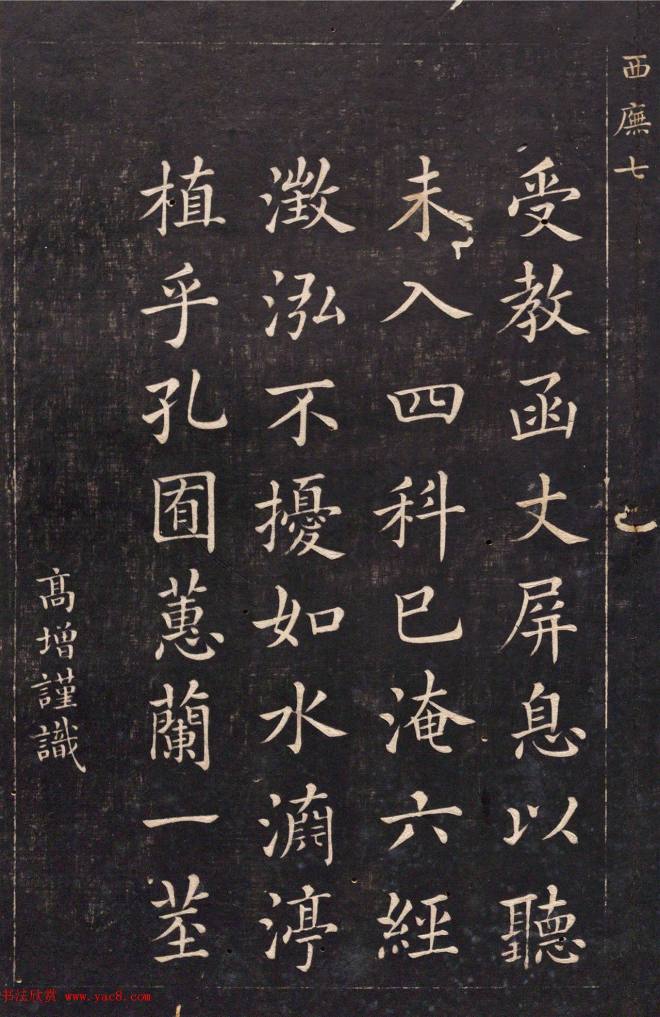 西廡七
受教函丈屏息以聽
未入四科已淹六經
澂泓不擾如水渟
植乎孔囿蕙蘭一莖
高增謹識
书法欣赏 www.yac8.com